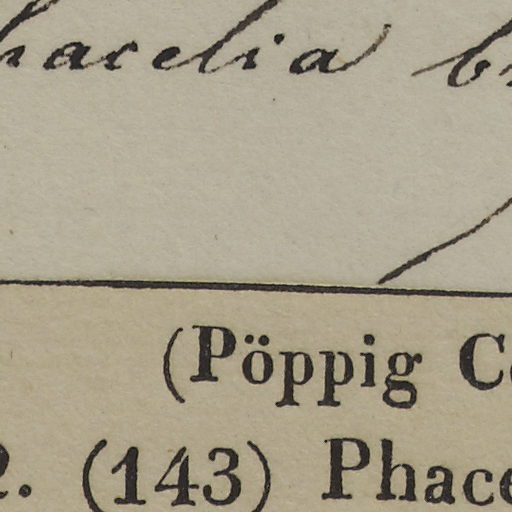 hacelia b
(Pöppig C
2. (143) Phace